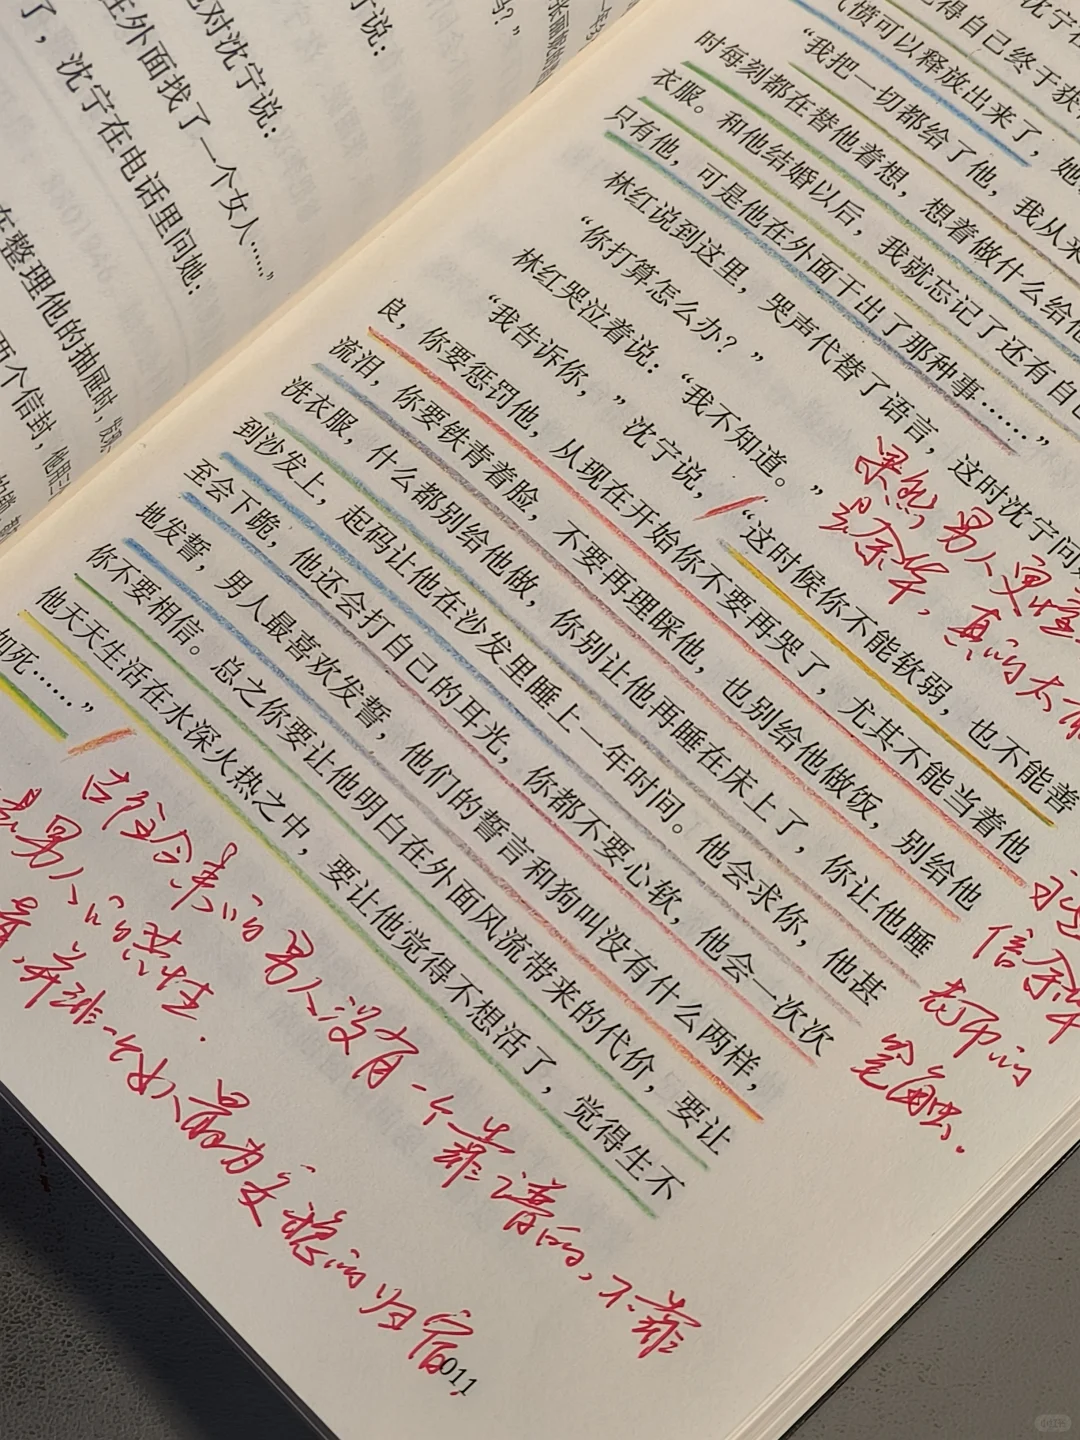 吗？”
说：
对沈宁说：
在外面找了一个女人……”
了，沈宁在电话里问她：
在整理他的抽屉时，
两个信封，
沈宁在
得自己终于获
气愤可以释放出来了，她
“我把一切都给了他，我从来
时每刻都在替他着想，想着做什么给他
衣服。和他结婚以后，我就忘记了还有自己
只有他，可是他在外面干出了那种事……”
林红说到这里，哭声代替了语言，这时沈宁问
“你打算怎么办？”
林红哭泣着说：“我不知道。”
“我告诉你，”沈宁说，“这时候你不能软弱，也不能善
良，你要惩罚他，从现在开始你不要再哭了，尤其不能当着他
流泪，你要铁青着脸，不要再理睬他，也别给他做饭，别给他
洗衣服，什么都别给他做，你别让他再睡在床上了，你让他睡
到沙发上，起码让他在沙发里睡上一年时间。他会求你，他甚
至会下跪，他还会打自己的耳光，你都不要心软，他会一次次
地发誓，男人最喜欢发誓，他们的誓言和狗叫没有什么两样，
你不要相信。总之你要让他明白在外面风流带来的代价，要让
他天天生活在水深火热之中，要让他觉得不想活了，觉得生不
如死……”
果然男人更懂
是余华，真的太
永远
信余华
老师的
笔触。
古往今来的男人没有一个靠谱的，不靠
男人的共性.
并非一个女人最为安稳的归宿，
011